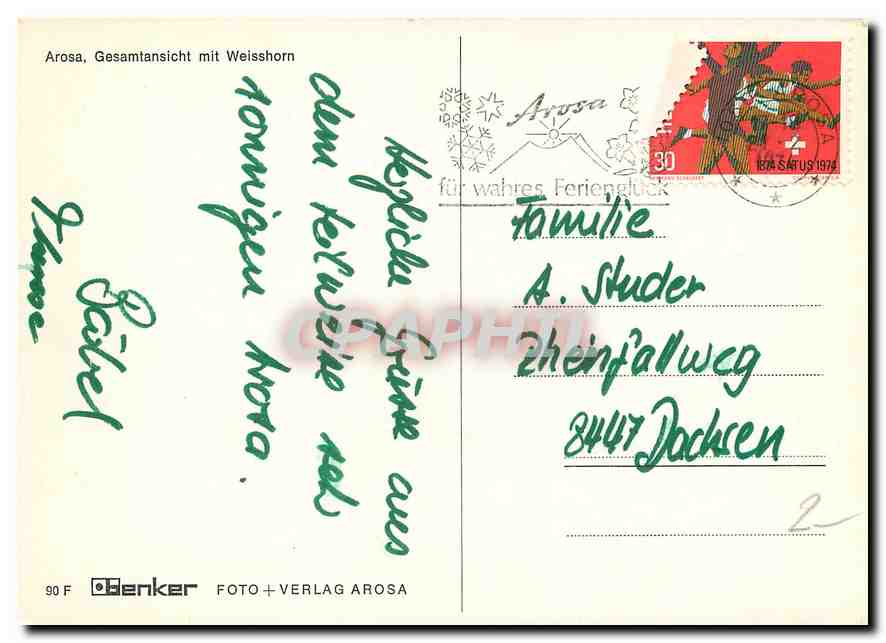 Arosa, Gesamtansicht mit Weisshorn
Herzliche Grüsse aus
dem teilweise seh
sonnigen Arosa.
Bärbel
Arosa
für wahres Ferienglück
30
1874 SATUS 1974
AROSA
Familie
A. Studer
Rheinfallweg
8447 Dachsen
2-
CPAPHIL
90 F Benker FOTO + VERLAG AROSA